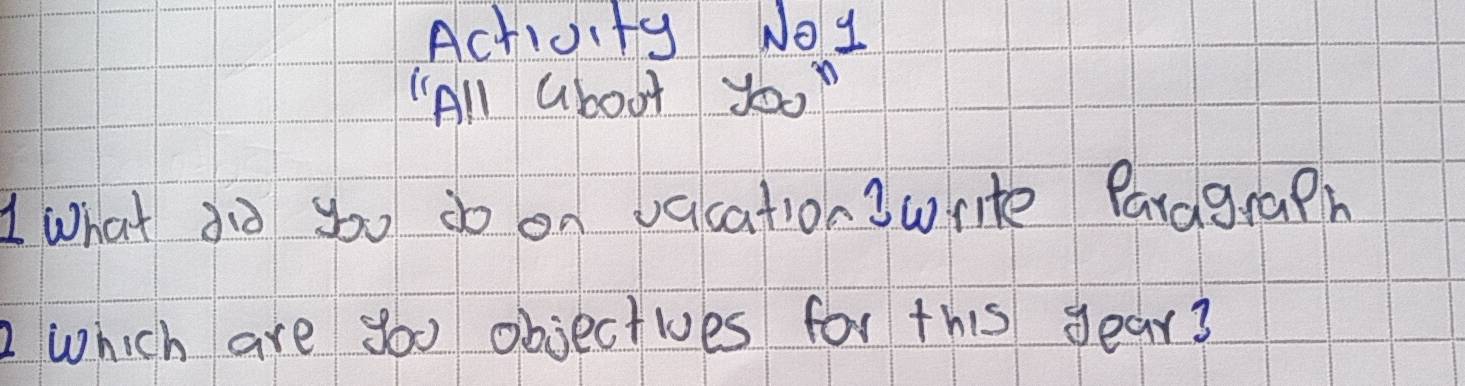 Activity No 1
"All about you"
1 What did you do on vacation? write Paragraph
2 which are you objectives for this year?